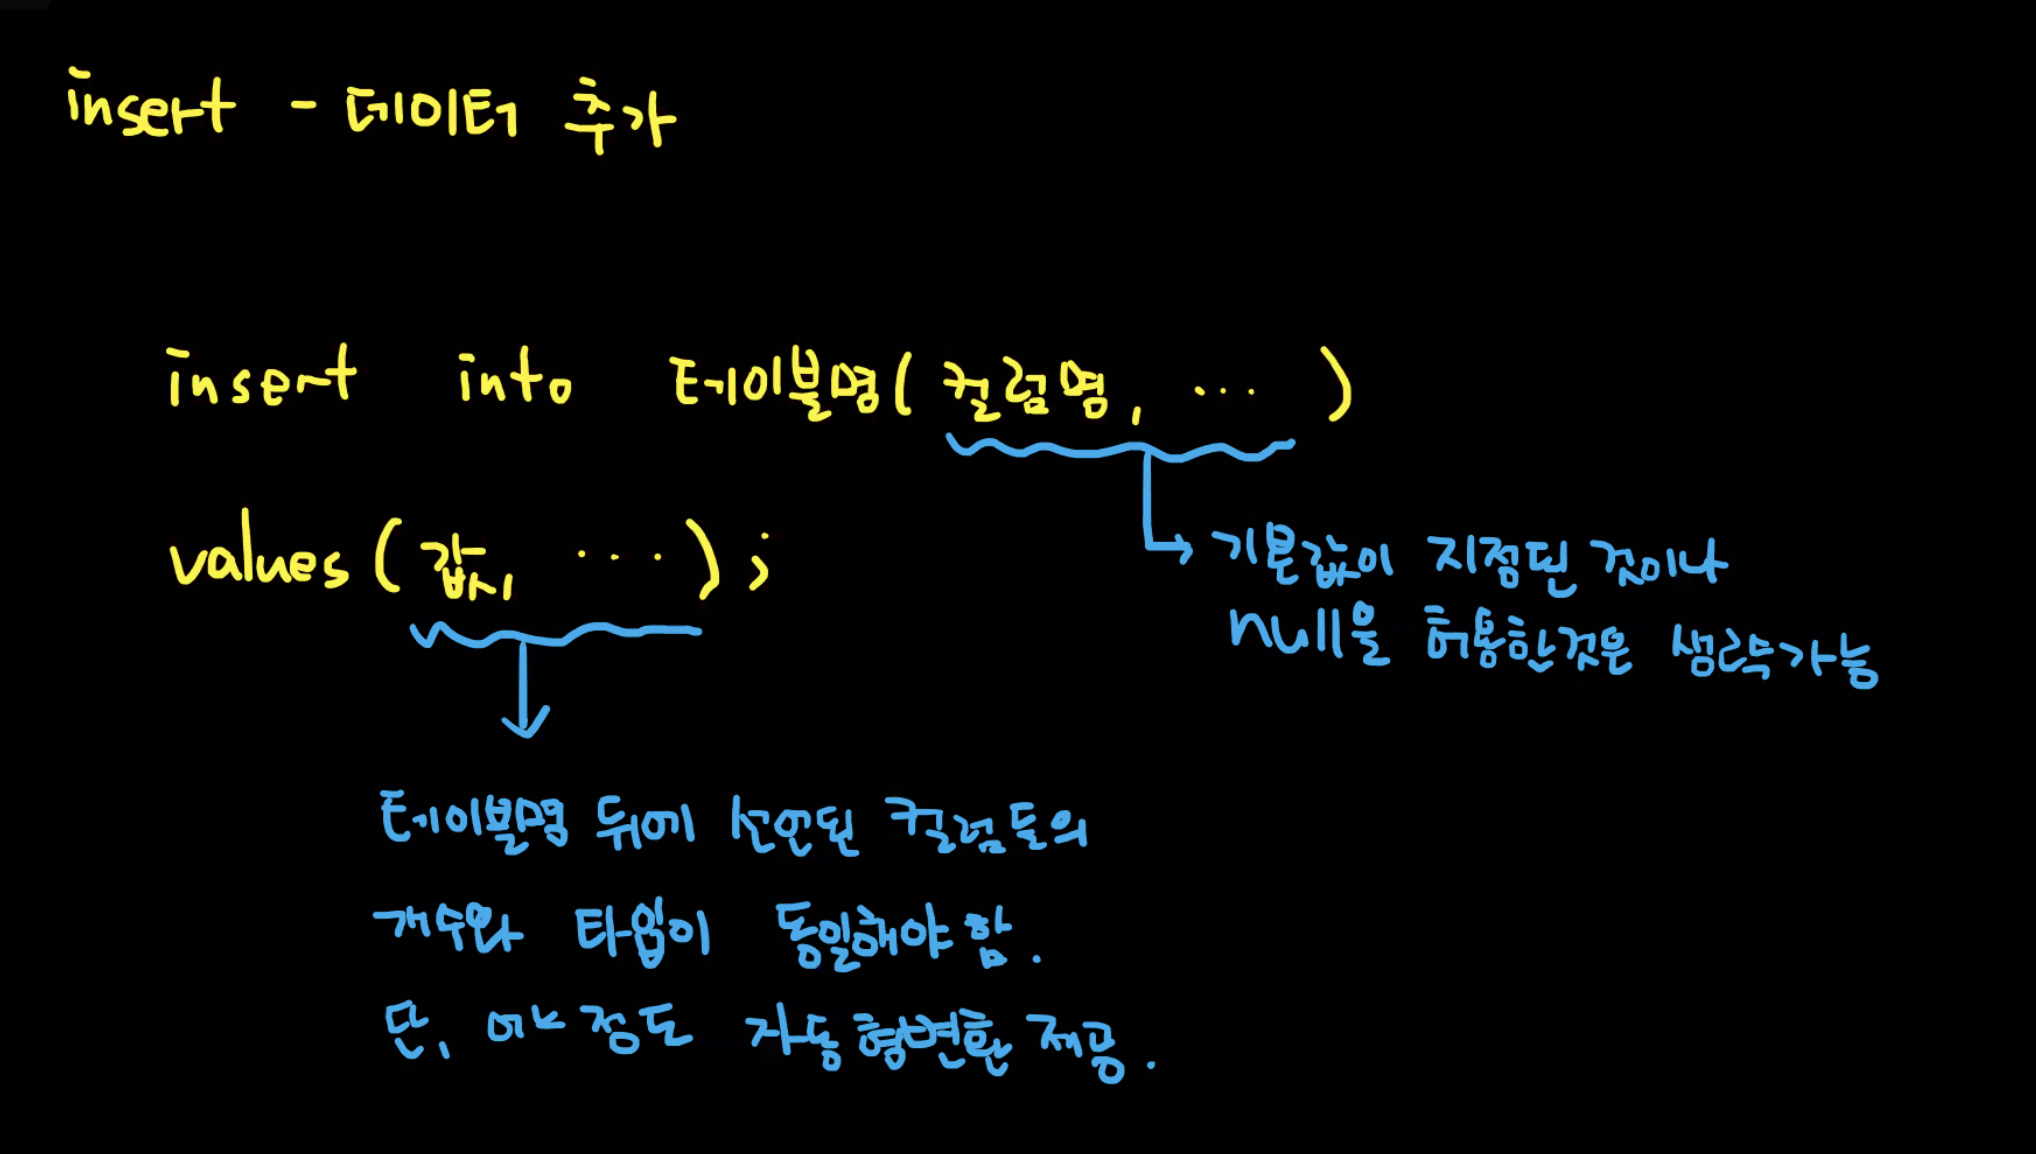 insert - 데이터 추가
insert into 테이블명(컬럼명, ... )
values(값, ...);
기본값이 지정된 것이나
null을 허용한것은 생략가능
테이블명 뒤에 선언된 컬럼들의
개수와 타입이 동일해야 함.
단, 어느정도 자동형변환 제공.